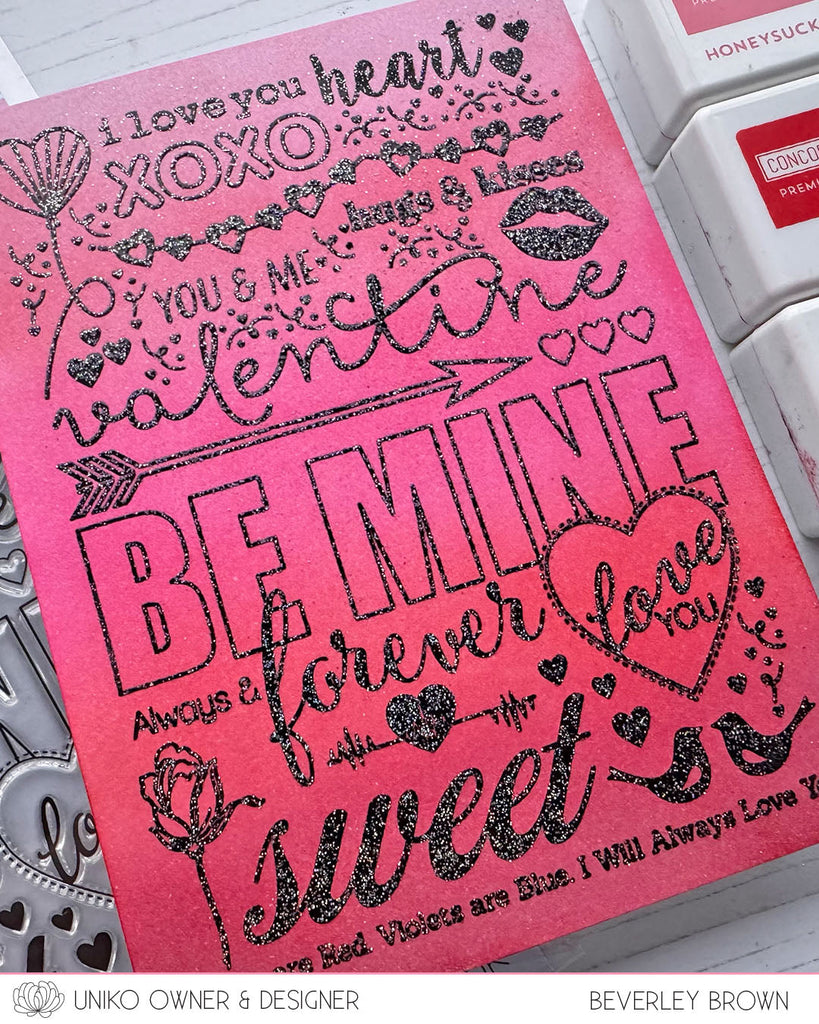 i love you heart
XOXO
hugs & kisses
YOU & ME
valentine
BE MINE
love
YOU
Always & forever
sweet
are Red. Violets are Blue. I Will Always Love
HONEYSUCK
CONCO
PREMI
UNIKO OWNER & DESIGNER
BEVERLEY BROWN